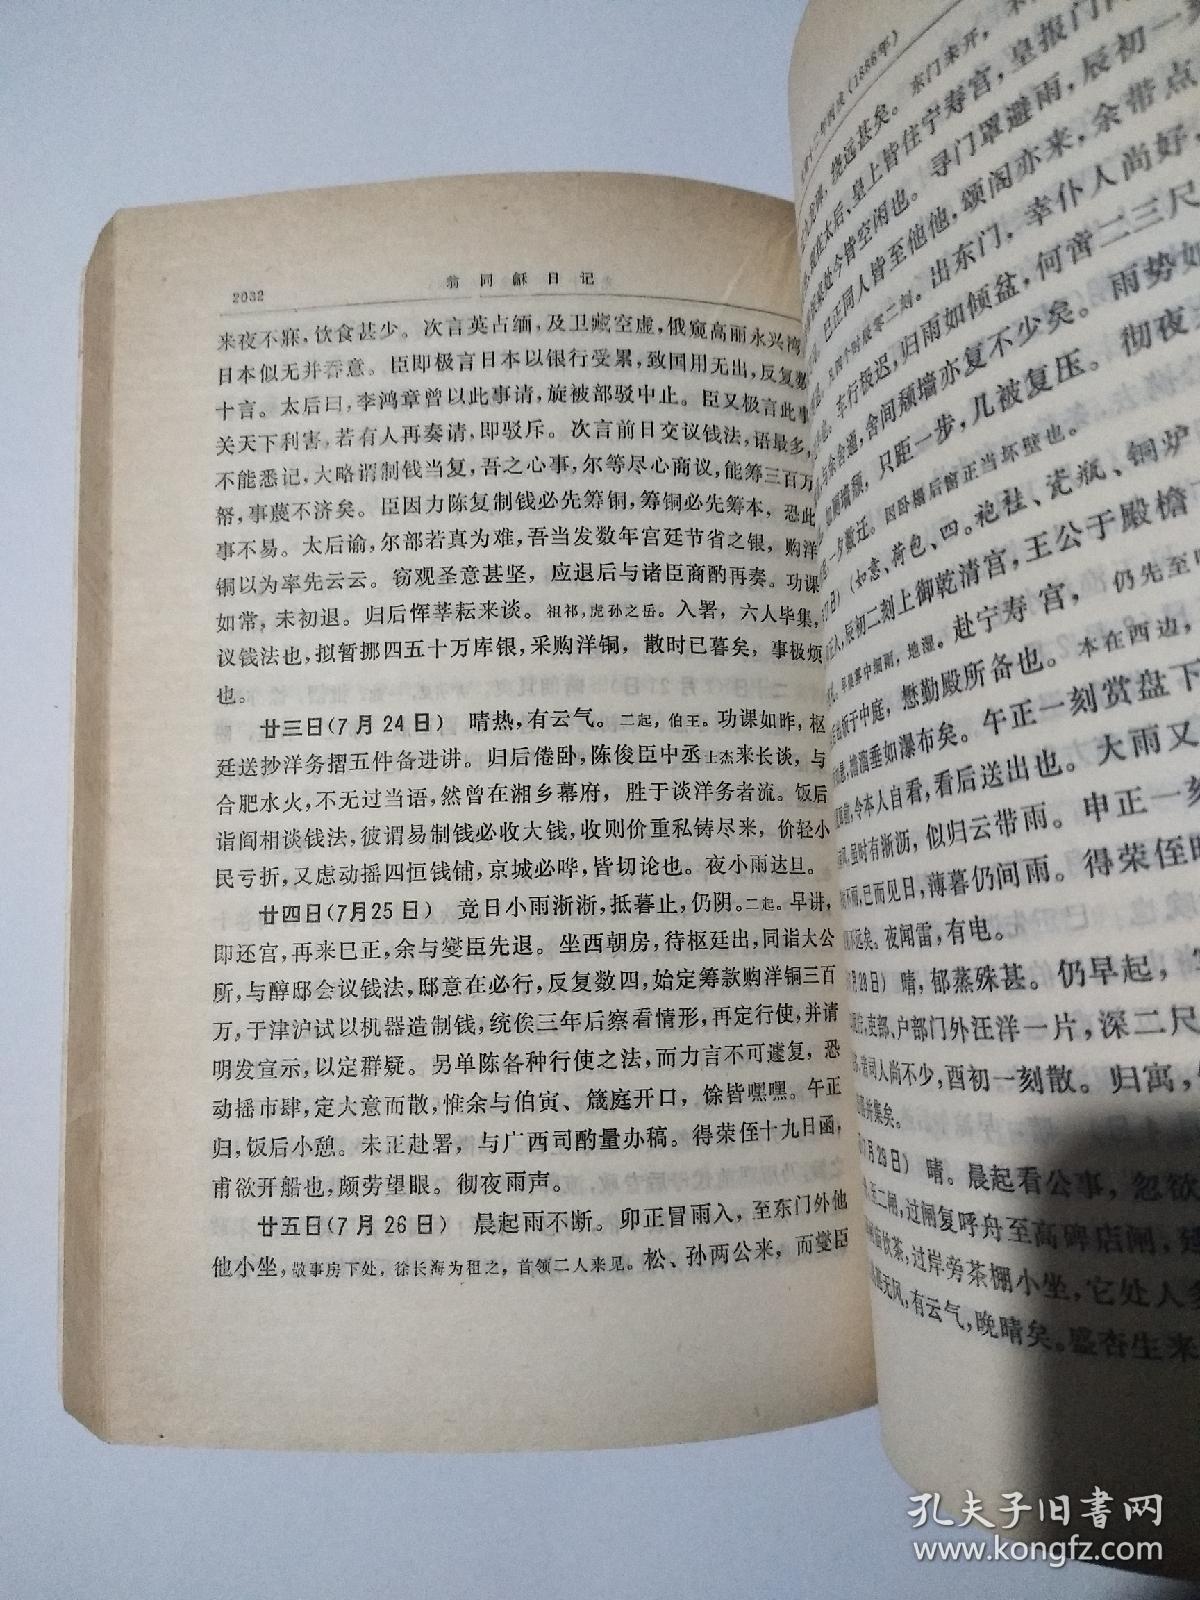 2032
翁同龢日记
来夜不寐，饮食甚少。次言英占缅，及卫藏空虚，俄窥高丽永兴湾，
日本似无并吞意。臣即极言日本以银行受累，致国用无出，反复数
十言。太后曰，李鸿章曾以此事请，旋被部驳中止。臣又极言此事
关天下利害，若有人再奏请，即驳斥。次言前日交议钱法，语最多，
不能悉记，大略谓制钱当复，吾之心事，尔等尽心商议，能筹三百万
帑，事蔑不济矣。臣因力陈复制钱必先筹铜，筹铜必先筹本，恐此
事不易。太后谕，尔部若真为难，吾当发数年宫廷节省之银，购洋
铜以为率先云云。窃观圣意甚坚，应退后与诸臣商酌再奏。功课
如常，未初退。归后恽莘耘来谈。祖祁，虎孙之岳。入署，六人毕集，
议钱法也，拟暂挪四五十万库银，采购洋铜，散时已暮矣，事极烦
也。
廿三日(7月24日) 晴热，有云气。二起，伯王。功课如昨，枢
廷送抄洋务摺五件备进讲。归后倦卧，陈俊臣中丞士杰来长谈，与
合肥水火，不无过当语，然曾在湘乡幕府，胜于谈洋务者流。饭后
诣阎相谈钱法，彼谓易制钱必收大钱，收则价重私铸尽来，价轻小
民亏折，又虑动摇四恒钱铺，京城必哗，皆切论也。夜小雨达旦。
廿四日(7月25日) 竟日小雨淅淅，抵暮止，仍阴。二起。早讲，
即还宫，再来巳正，余与燮臣先退。坐西朝房，待枢廷出，同诣大公
所，与醇邸会议钱法，邸意在必行，反复数四，始定筹款购洋铜三百
万，于津沪试以机器造制钱，统俟三年后察看情形，再定行使，并请
明发宣示，以定群疑。另单陈各种行使之法，而力言不可遽复，恐
动摇市肆，定大意而散，惟余与伯寅、箴庭开口，馀皆嘿嘿。午正
归，饭后小憩。未正赴署，与广西司酌量办稿。得荣侄十九日函，
甫欲开船也，颇劳望眼。彻夜雨声。
廿五日(7月26日) 晨起雨不断。卯正冒雨入，至东门外他
他小坐，敬事房下处，徐长海为租之，首领二人来见。松、孙两公来，而燮臣
(1886年)
绕远甚矣。东门未开，
太后、皇上皆住宁寿宫，皇报门
处今皆空闲也。寻门罩避雨，辰初一刻
巳正同人皆至他他，颂阁亦来，余带点
出东门，幸仆人尚好，
车行极迟，归雨如倾盆，何啻二三尺
舍间颓墙亦复不少矣。雨势如
只距一步，几被复压。彻夜
一夕数迁。因卧榻后窗正当坏壁也。
(如意、荷包、四。袍袿、瓷瓶、铜炉
辰初二刻上御乾清宫，王公于殿檐
早晚雾中细雨，地湿。赴宁寿宫，仍先至
于中庭，懋勤殿所备也。本在西边，
檐滴垂如瀑布矣。午正一刻赏盘下
令本人自看，看后送出也。大雨又
时有淅沥，似归云带雨。申正一刻
不雨，已而见日，薄暮仍间雨。得荣侄
不远矣。夜闻雷，有电。
月28日) 晴，郁蒸殊甚。仍早起，
吏部、户部门外汪洋一片，深二尺
司人尚不少，酉初一刻散。归寓，
并集矣。
月29日) 晴。晨起看公事，忽欲
至二闸，过闸复呼舟至高碑店闸，
饮茶，过岸旁茶棚小坐，它处人
无风，有云气，晚晴矣。盛杏生来
孔夫子旧书网
www.kongfz.com